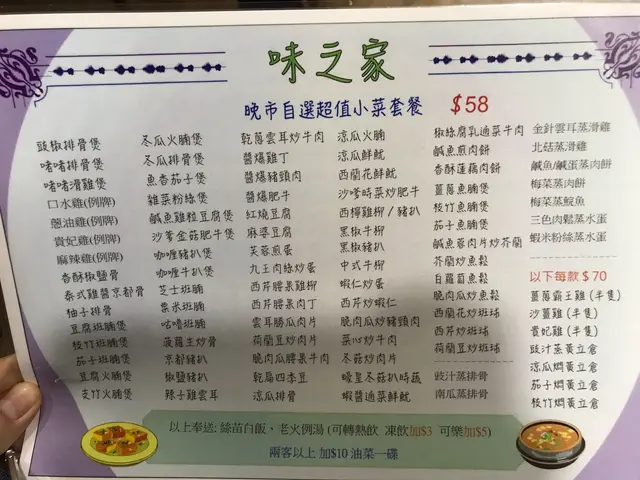 味之家
晚市自選超值小菜套餐 $58
豉椒排骨煲
啫啫排骨煲
啫啫滑雞煲
口水雞(例牌)
蔥油雞(例牌)
貴妃雞(例牌)
麻辣雞(例牌)
香酥椒鹽骨
泰式雞醬京都骨
柚子排骨
豆腐班腩煲
枝竹班腩煲
茄子班腩煲
豆腐火腩煲
支竹火腩煲
冬瓜火腩煲
冬瓜排骨煲
魚香茄子煲
雜菜粉絲煲
鹹魚雞粒豆腐煲
沙爹金菇肥牛煲
咖喱豬扒煲
咖喱牛扒煲
芝士班腩
粟米班腩
咕嚕班腩
菠蘿生炒骨
京都豬扒
椒鹽豬扒
辣子雞雲耳
乾蔥雲耳炒牛肉
醬爆雞丁
醬爆豬頸肉
醬爆肥牛
紅燒豆腐
麻婆豆腐
芙蓉煎蛋
九王肉絲炒蛋
西芹腰果雞柳
西芹腰果肉丁
雲耳勝瓜肉片
脆肉瓜腰果牛肉
乾扁四季豆
涼瓜排骨
涼瓜火腩
涼瓜鮮魷
西蘭花鮮魷
沙嗲時菜炒肥牛
西檸雞柳/豬扒
黑椒牛柳
黑椒豬扒
中式牛柳
蝦仁炒蛋
西芹炒蝦仁
脆肉瓜炒豬頸肉
菜心炒牛肉
冬菇炒肉片
蠔皇冬菇扒時蔬
蝦醬通菜鮮魷
椒絲腐乳通菜牛肉
鹹魚煎肉餅
香酥蓮藕肉餅
薑蔥魚腩煲
枝竹魚腩煲
茄子魚腩煲
鹹魚蓉肉片炒芥蘭
芥蘭炒魚鬆
白蘿蔔魚鬆
脆肉瓜炒魚鬆
西蘭花炒班球
西芹炒班球
荷蘭豆炒班球
豉汁蒸排骨
南瓜蒸排骨
金針雲耳蒸滑雞
北菇蒸滑雞
鹹魚/鹹蛋蒸肉餅
梅菜蒸肉餅
梅菜蒸鯇魚
三色肉鬆蒸水蛋
蝦米粉絲蒸水蛋
以下每款 $70
薑蔥霸王雞 (半隻)
沙薑雞 (半隻)
貴妃雞 (半隻)
豉汁蒸黃立倉
涼瓜燜黃立倉
茄子燜黃立倉
枝竹燜黃立倉
以上奉送: 絲苗白飯、老火例湯 (可轉熱飲 凍飲加$3 可樂加$5)
兩客以上 加$10 油菜一碟